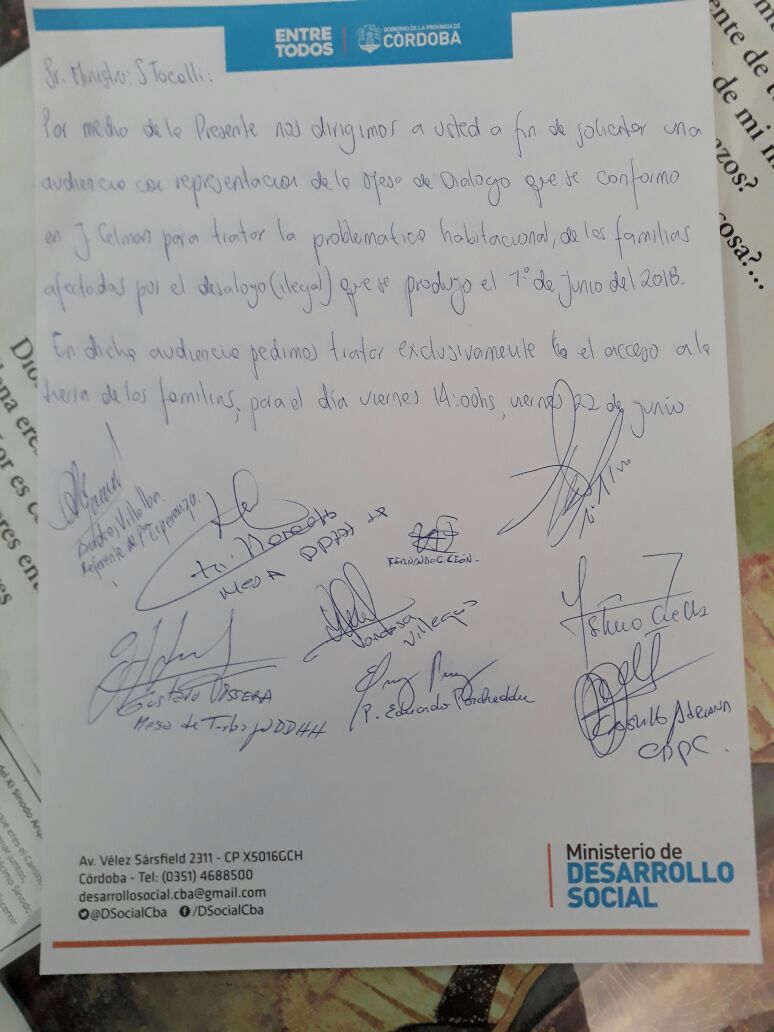 ENTRE TODOS
GOBIERNO DE LA PROVINCIA DE
CÓRDOBA
Sr. Ministro: S Tocalli:
Por medio de la Presente nos dirigimos a usted a fin de solicitar una
audiencia con representacion de la Mesa de Dialogo que se conformo
en J Celman para tratar la problematica habitacional, de las familias
afectadas por el desalogo (ilegal) que se produjo el 1º de Junio del 2018.
En dicha audiencia pedimos tratar exclusivamente el acceso a la
tierra de las familias, para el día viernes 14:00hs, viernes 22 de junio.
Villalba
Referente de Pza Esperanza.
MESA DDHH
FERNANDO C. LEÓN.
Vanessa
Villegas
GUSTAVO VISSERA
Mesa de Trabajo DDHH
P. Eduardo
ADRIANA
CDPC.
ente de
de mi
azos?
cosa?...
Dio
ena ere
or es c
eres en
Av. Vélez Sársfield 2311 - CP X5016GCH
Córdoba - Tel: (0351) 4688500
desarrollosocial.cba@gmail.com
@DSocialCba /DSocialCba
Ministerio de
DESARROLLO
SOCIAL